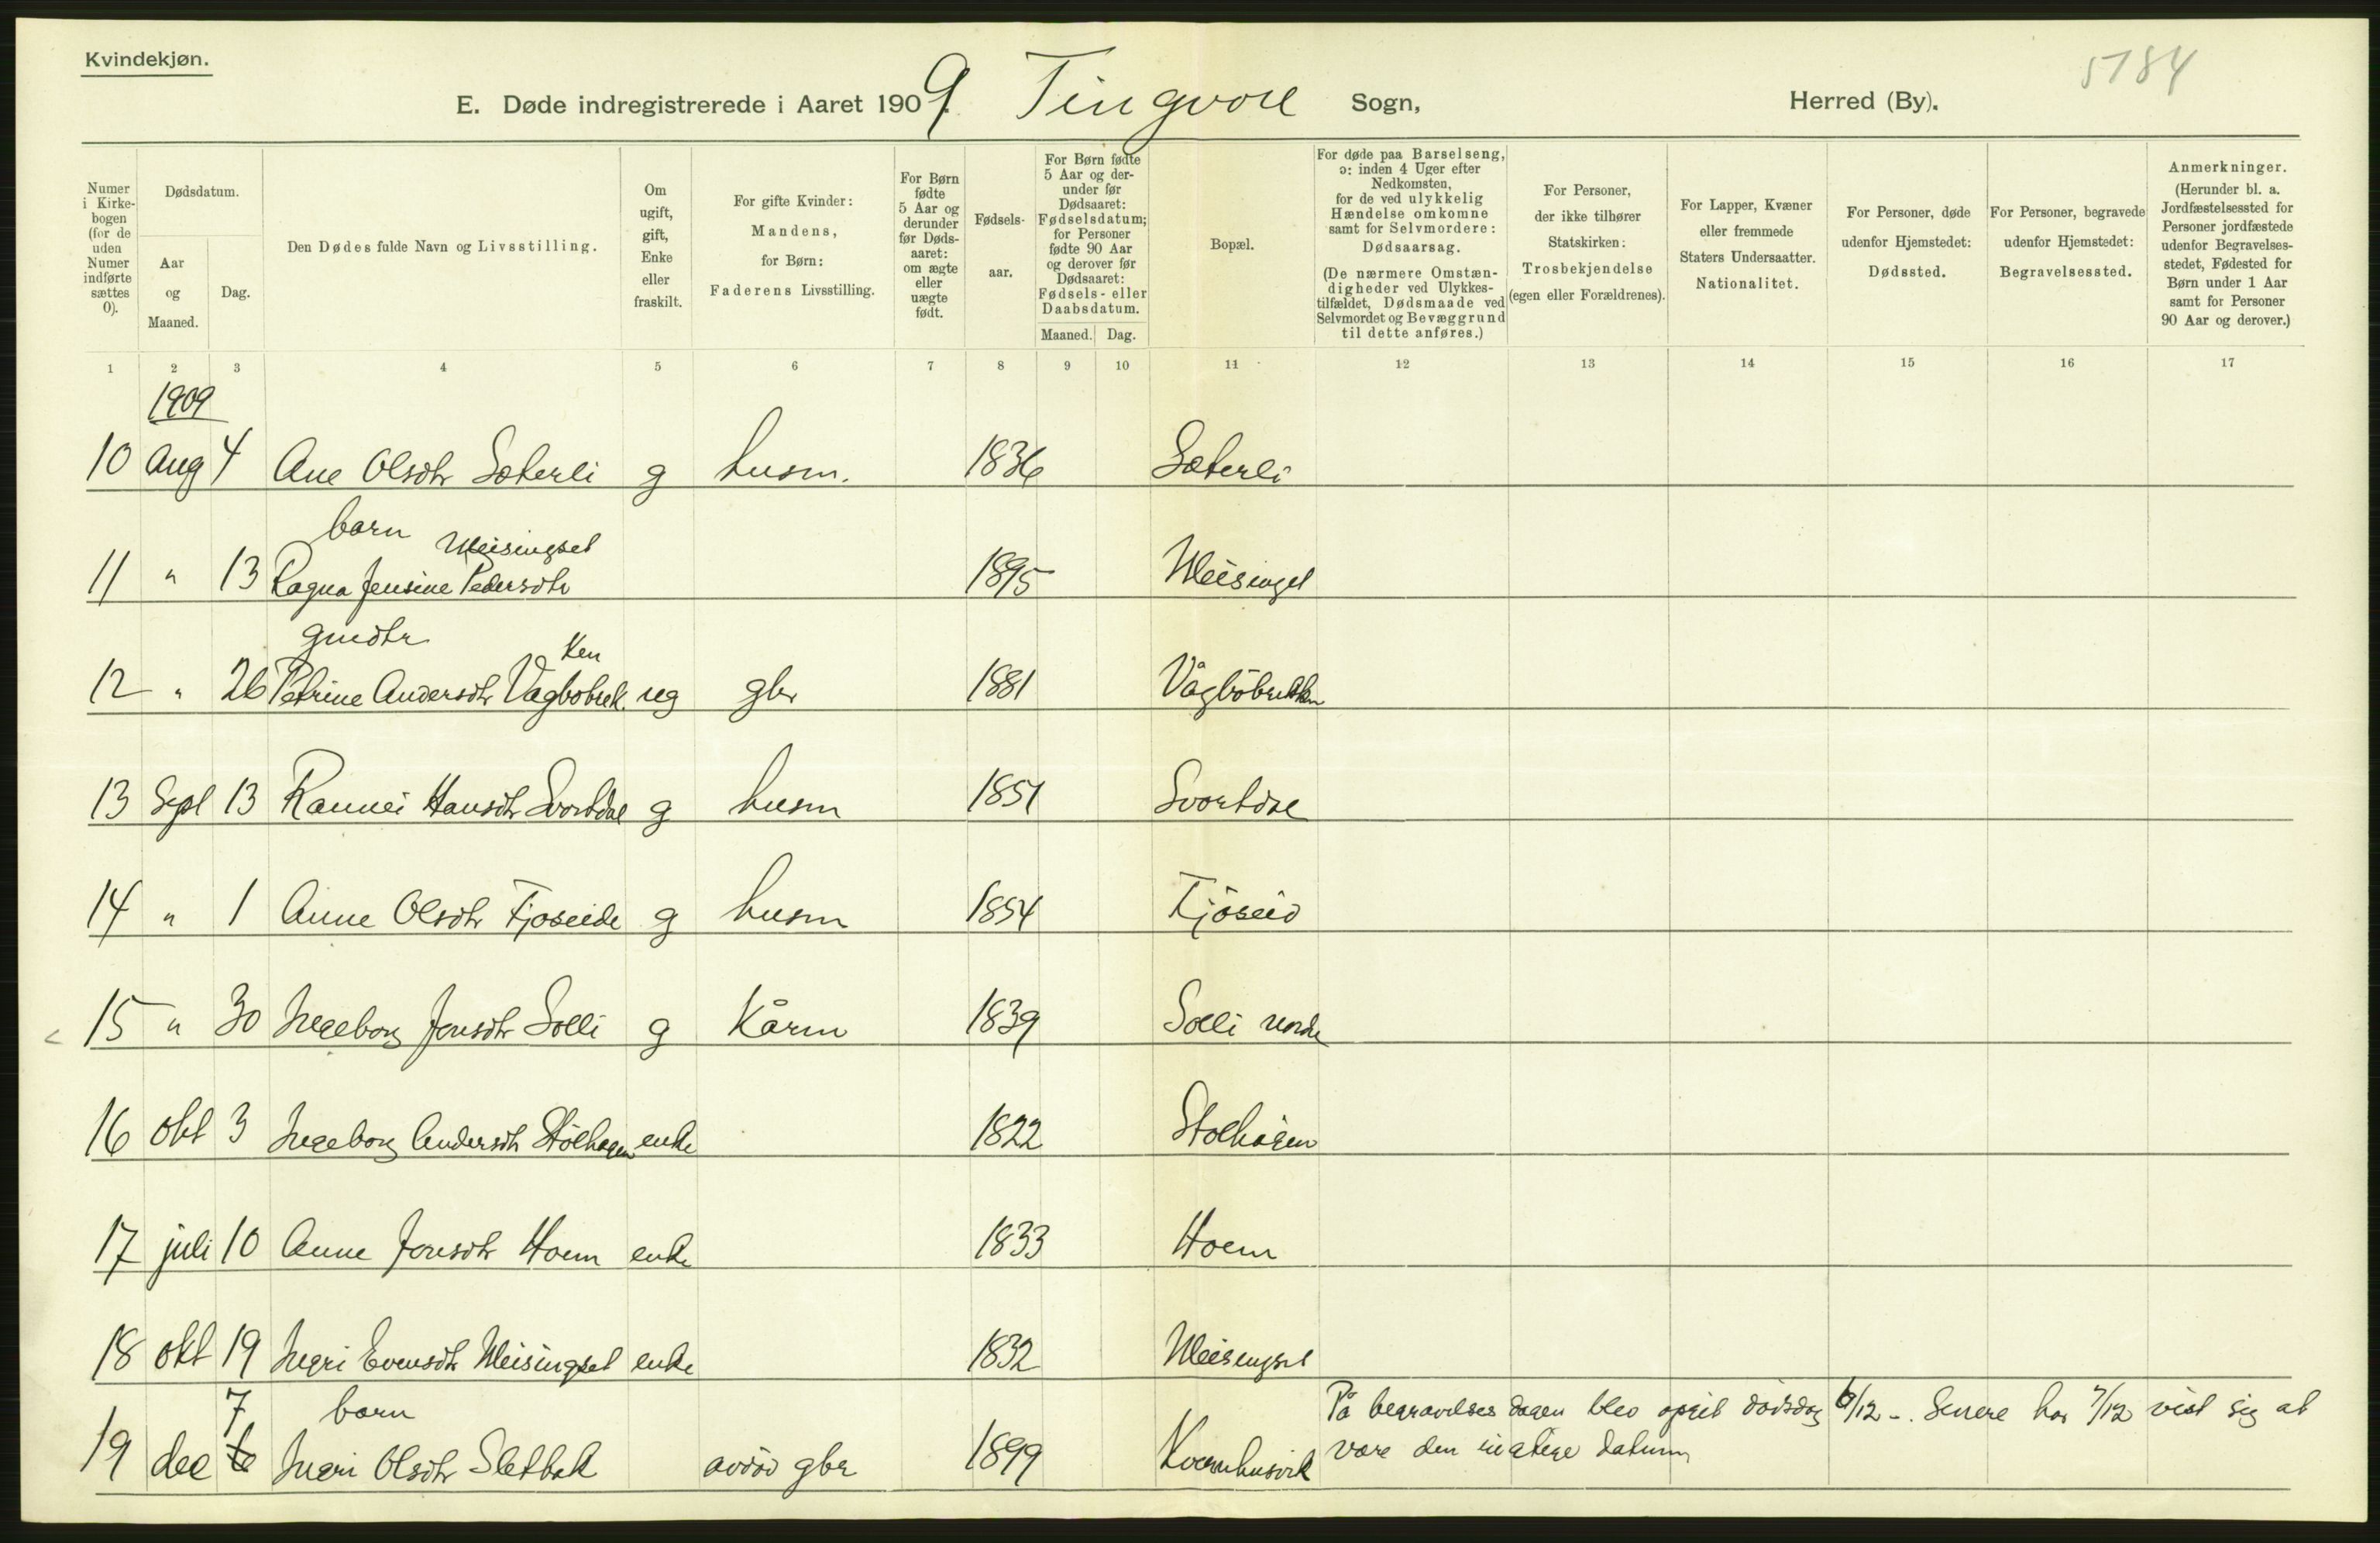 Kvindekjøn.
5184
E. Døde indregistrerede i Aaret 1909. Tingvoll Sogn, Herred (By).
Numer i Kirkebogen (for de uden Numer indførte sættes 0).
Dødsdatum.
Aar og Maaned.
Dag.
Den Dødes fulde Navn og Livsstilling.
Om ugift, gift, Enke eller fraskilt.
For gifte Kvinder: Mandens, for Børn: Faderens Livsstilling.
For Børn fødte 5 Aar og derunder før Dødsaaret: om ægte eller uægte født.
Fødselsaar.
For Børn fødte 5 Aar og derunder før Dødsaaret: Fødselsdatum; for Personer fødte 90 Aar og derover før Dødsaaret: Fødsels- eller Daabsdatum.
Maaned. Dag.
Bopæl.
For døde paa Barselseng, ɔ: inden 4 Uger efter Nedkomsten, for de ved ulykkelig Hændelse omkomne samt for Selvmordere: Dødsaarsag.
(De nærmere Omstændigheder ved Ulykkestilfældet, Dødsmaade ved Selvmordet og Bevæggrund til dette anføres.)
For Personer, der ikke tilhører Statskirken: Trosbekjendelse (egen eller Forældrenes).
For Lapper, Kvæner eller fremmede Staters Undersaatter. Nationalitet.
For Personer, døde udenfor Hjemstedet: Dødssted.
For Personer, begravede udenfor Hjemstedet: Begravelsessted.
Anmerkninger. (Herunder bl. a. Jordfæstelsessted for Personer jordfæstede udenfor Begravelsesstedet, Fødested for Børn under 1 Aar samt for Personer 90 Aar og derover.)
1 2 3 4 5 6 7 8 9 10 11 12 13 14 15 16 17
1909
10 Aug 4 Ane Olsdtr Sæterli g husm. 1836 Sæterli
barn Meisingset
11 " 13 Ragna Jensine Pedersdtr 1895 Meisingset
gmdtr ken
12 " 26 Petrine Andersdtr Vågbøbrek. ug gbr 1881 Vågbøbrekken
13 Sept 13 Rannei Hansdtr Svortdal g husm 1851 Svortdal
14 " 1 Anne Olsdtr Fjøseide g husm 1854 Fjøseid
15 " 30 Ingeborg Jonsdtr Solli g Kårm 1839 Solli nordre
16 okt 3 Ingeborg Andersdtr Stølhagen enke 1822 Stølhagen
17 juli 10 Anne Jonsdtr Hoem enke 1833 Hoem
18 okt 19 Ingri Evensdtr Meisingset enke 1832 Meisingset
7 barn På begravelsesdagen blev opgit dødsdag 6/12 -. Senere har 7/12 vist sig at
19 dec 6 Ingri Olsdtr Sletbak avdød gbr 1899 Kvernhusvik være den rigtige datum